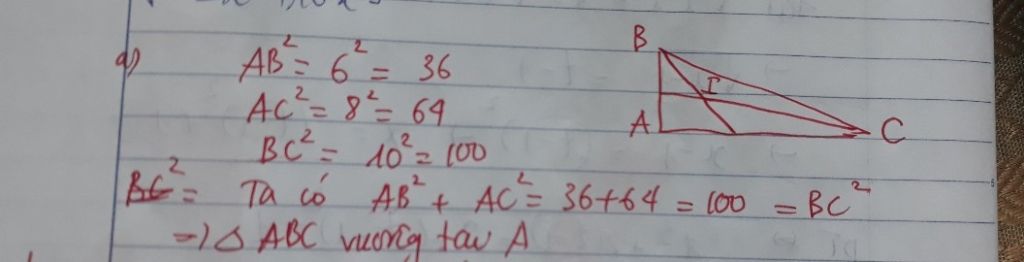 a) AB² = 6² = 36
AC² = 8² = 64
BC² = 10² = 100
BC² = Ta có AB² + AC² = 36+64 = 100 = BC²
=> △ ABC vuông tại A
B
I
A
C